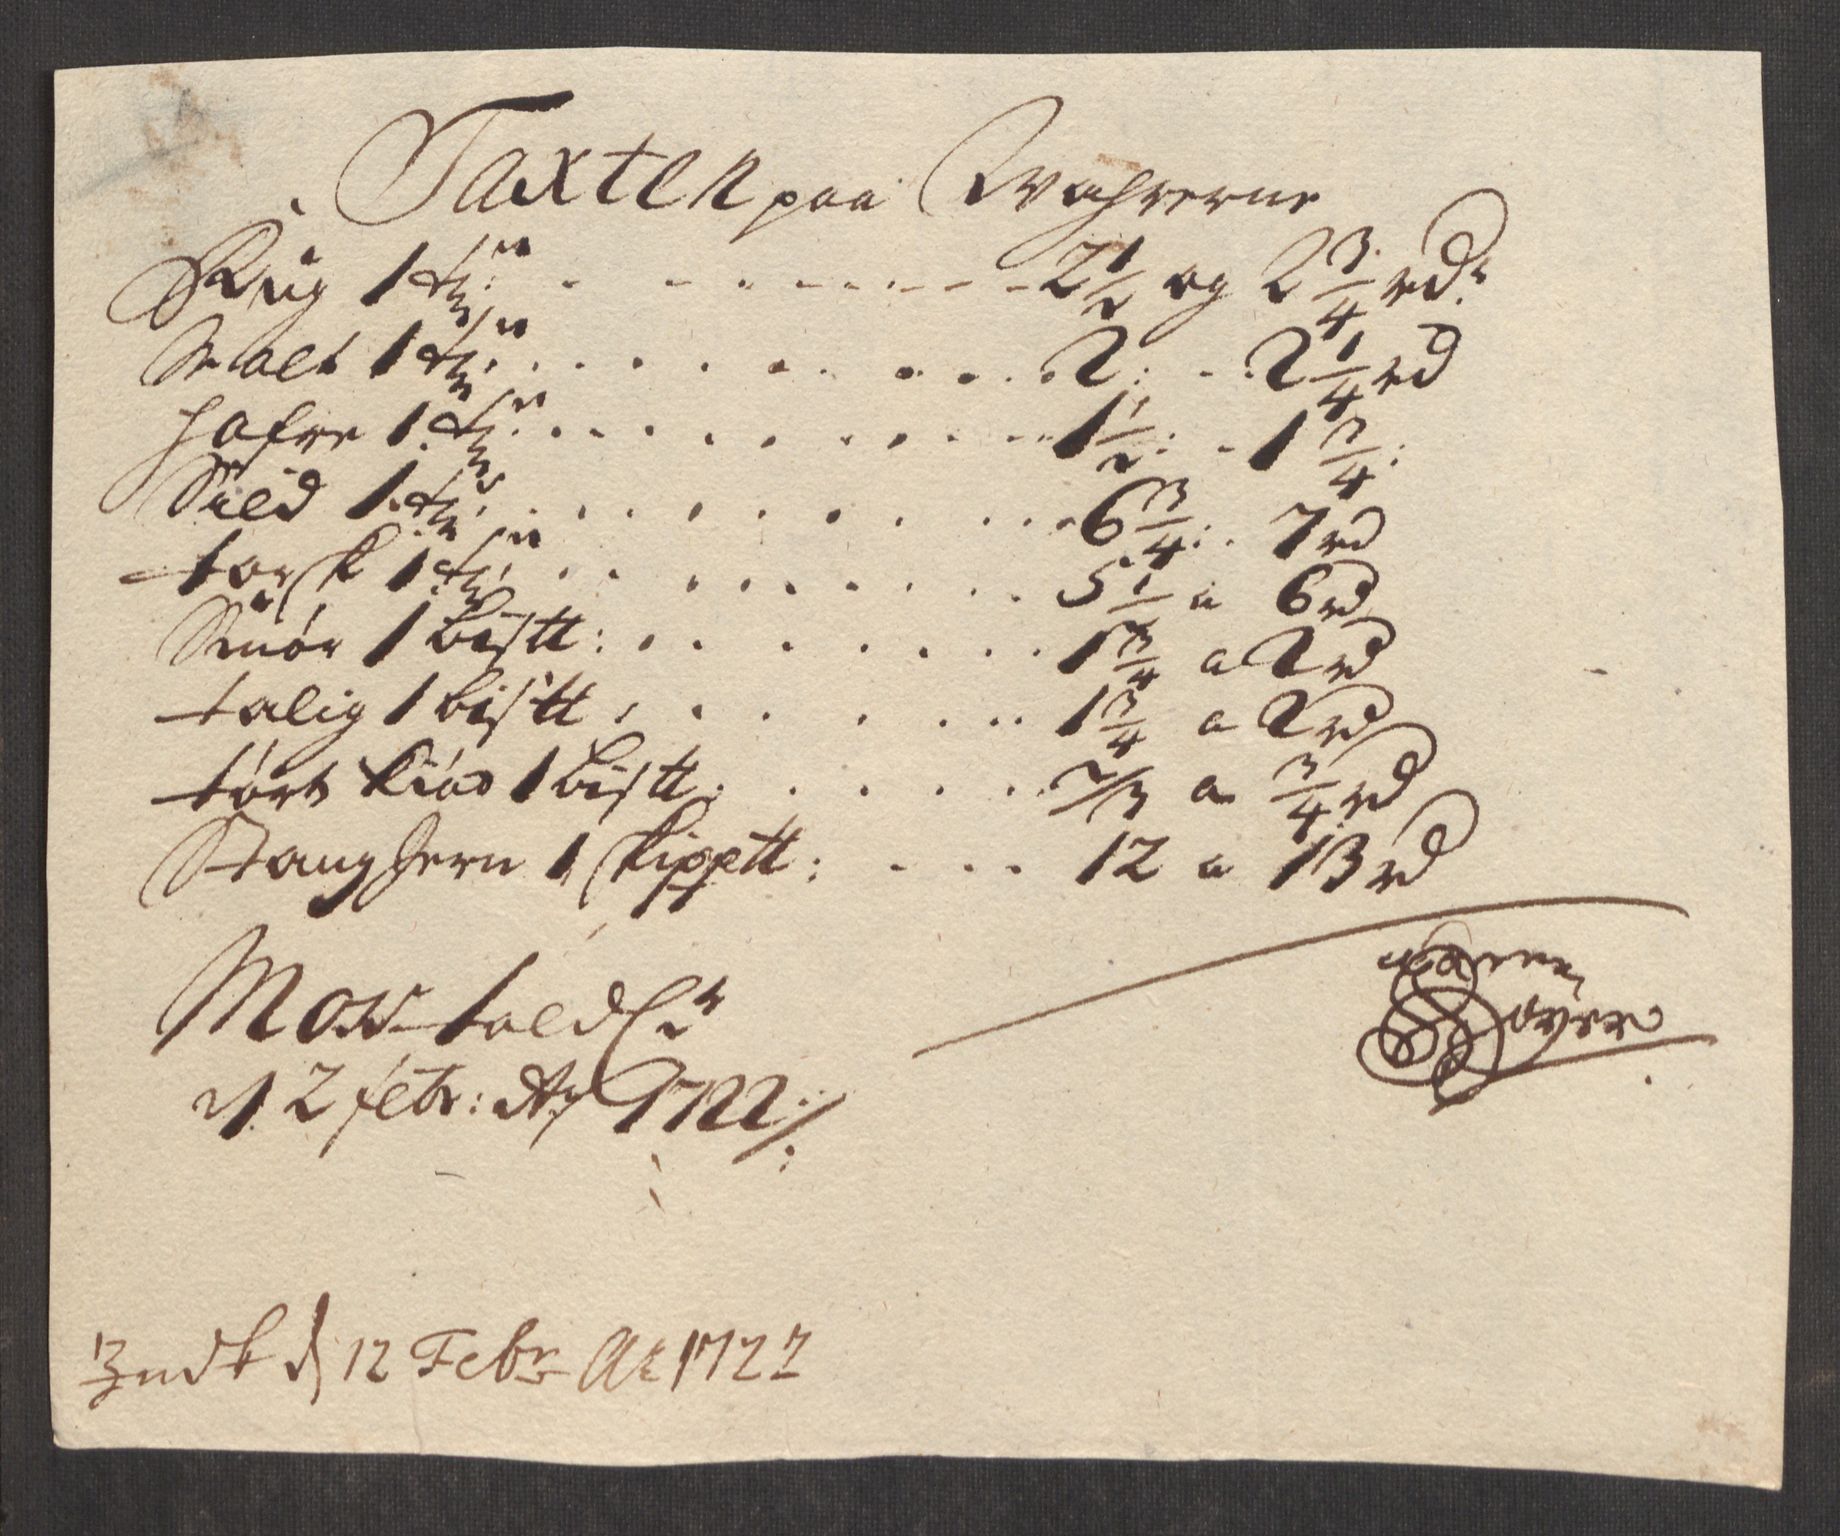 Taxten paa Wahrerne
Rug 1 tn: - - - - - - 2 1/2 og 2 3/4 rdr
Malt 1 tn: . . . . . . 2: - 2 1/4 rd
hafre 1 tn: . . . . . . 1 1/2: - 1 3/4:
Sild 1 tn: . . . . . . 6 3/4: . 7 rd
torsk 1 tn: . . . . . . 5 1/2 a 6 rd
Smör 1 bistt: . . . . . . 1 3/4 a 2 rd
talig 1 bistt: . . . . . 1 3/4 a 2 rd
tört kiöd 1 bistt: . . . . 2/3 a 3/4 rd
Stang Jern 1 skipptt: . . . 12 a 13 rd
Moss told
12 febr: Ao 1722/:
Søren
Indk d 12 Febr Ao 1722